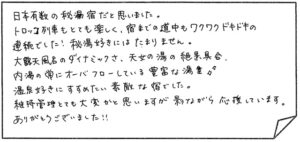 日本有数の秘湯宿だと思いました。
トロッコ列車もとても楽しく、宿までの道中もワクワクドキドキの
連続でした！秘湯好きにはたまりません。
大露天風呂のダイナミックさ、天女の湯の絶景具合、
内湯の常にオーバーフローしている豊富な湯量
温泉好きにすすめたい素敵な宿でした。
維持管理とても大変かと思いますが影ながら応援しています。
ありがとうございました!!